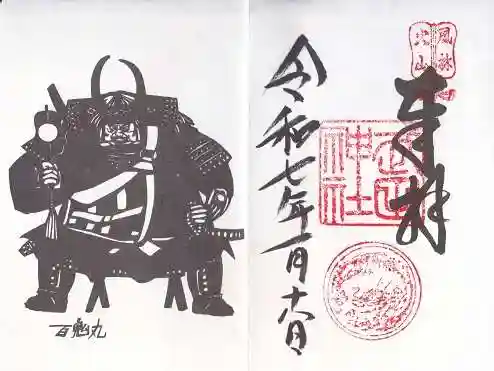 風林
火山
奉拝
武田
神社
令和七年一月
百鬼丸